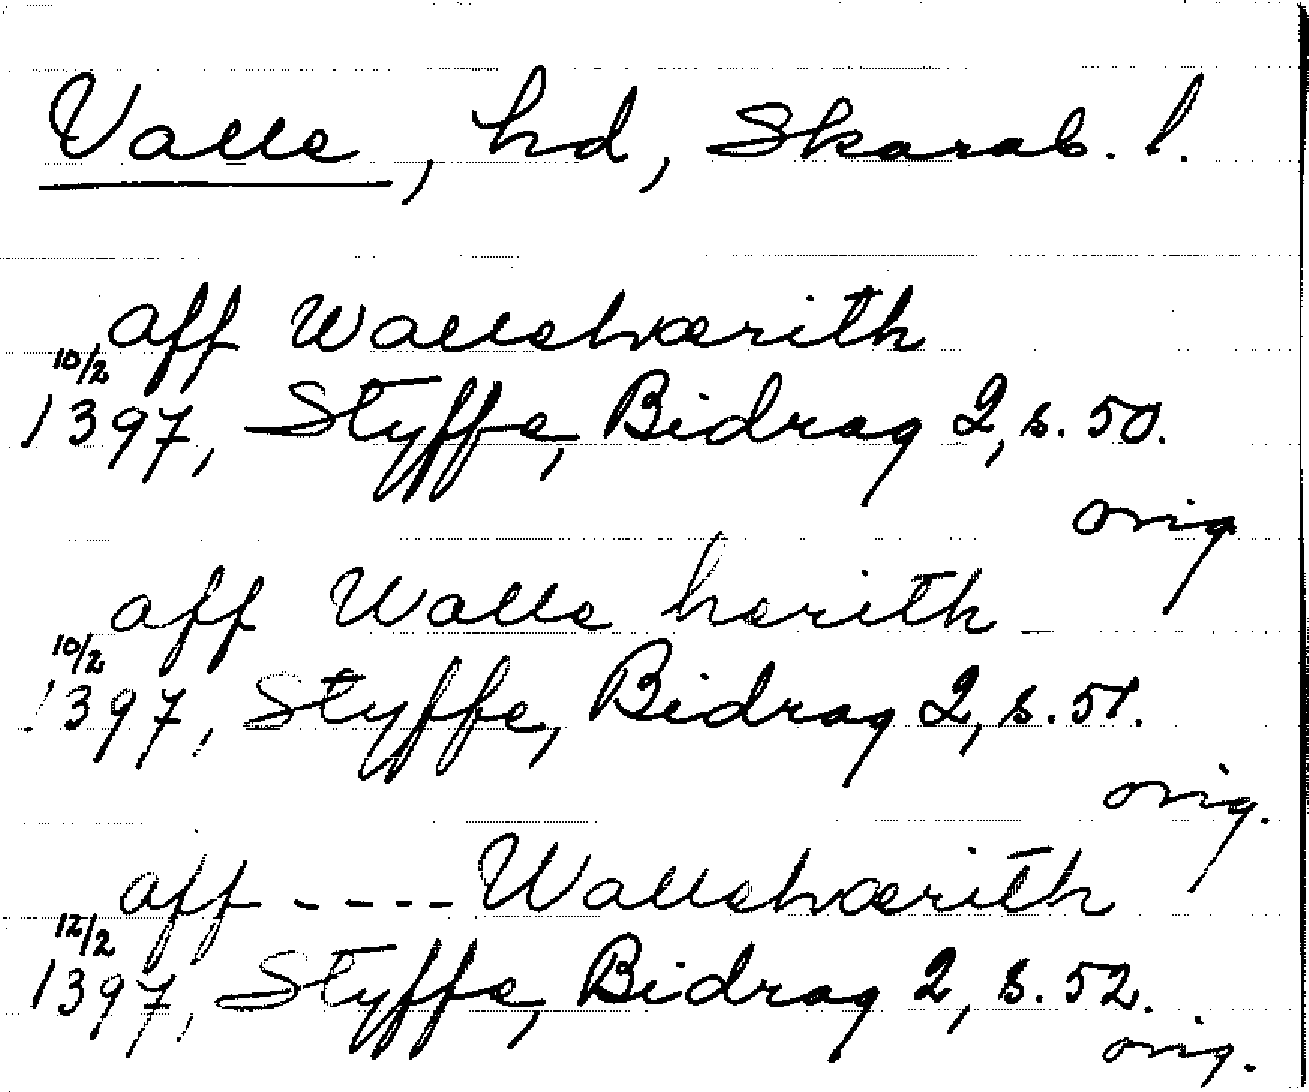 Valle, hd, Skarab. l.
aff Wallehærith
10/2 1397, Styffe, Bidrag 2, s. 50.
orig
aff Walle herith
10/2 1397, Styffe, Bidrag 2, s. 51.
orig.
aff ---- Wallehærith
12/2 1397, Styffe, Bidrag 2, s. 52.
orig.